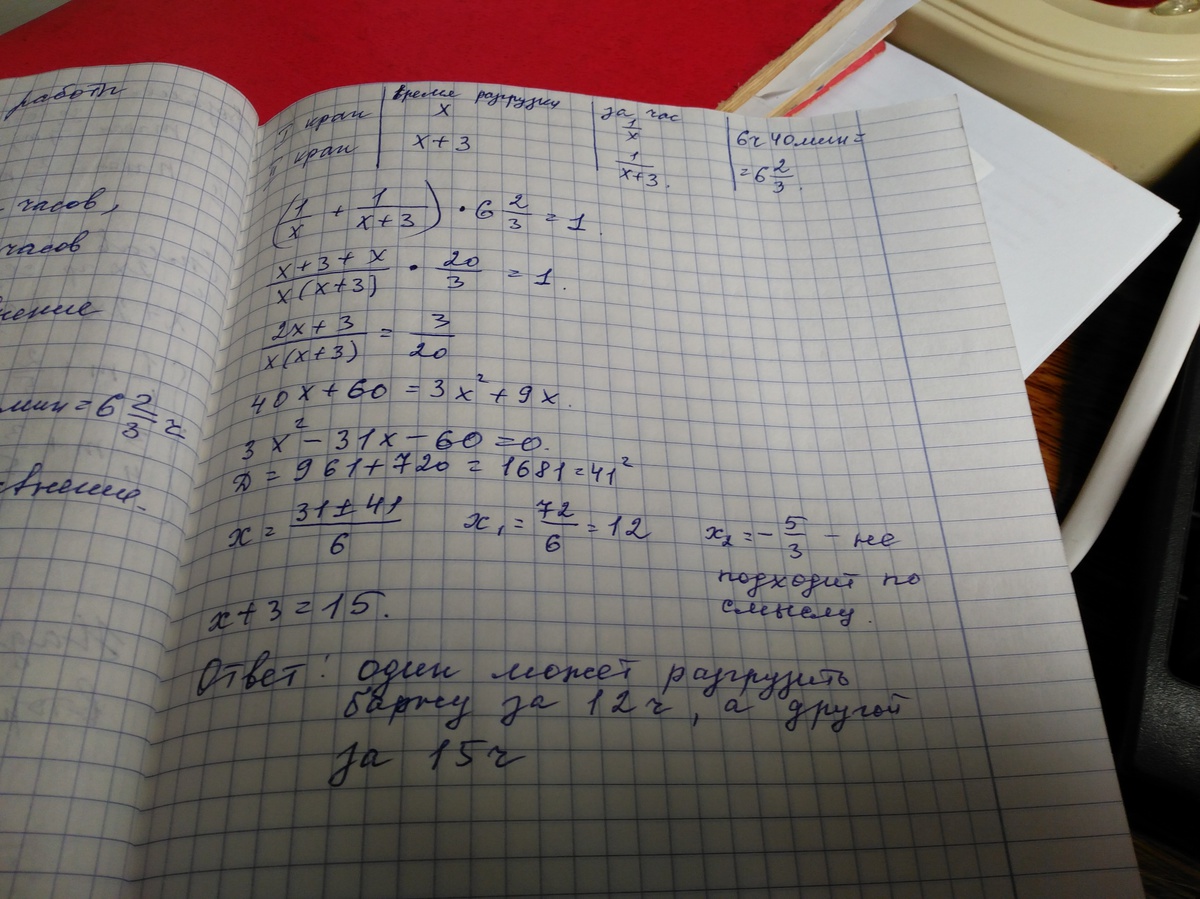 работы
часов,
часов
мин = 6 2/3 ч
время разгрузки | за час
I кран | x | 1/x | 6ч 40мин =
II кран | x + 3 | 1/(x+3). | = 6 2/3.
(1/x + 1/(x+3)) · 6 2/3 = 1.
(x+3+x)/(x(x+3)) · 20/3 = 1.
(2x+3)/(x(x+3)) = 3/20
40x + 60 = 3x² + 9x.
3x² - 31x - 60 = 0.
D = 961 + 720 = 1681 = 41²
x = (31 ± 41)/6   x₁ = 72/6 = 12   x₂ = - 5/3 - не
подходит по
смыслу.
x + 3 = 15.
Ответ: один может разгрузить
баржу за 12ч, а другой
за 15ч